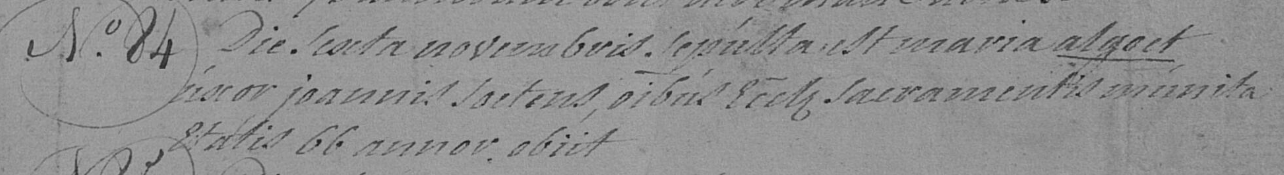 N.° 84 Die sexta novembris sepulta est maria algoet
uxor joannis soetens, oībus Eccl̄æ sacramentis munita
Etatis 66 annor. obiit